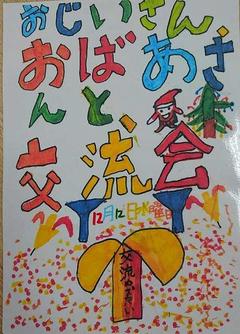 おじいさん
おばあさ
んと、
交流会
12月12日水曜日
交流